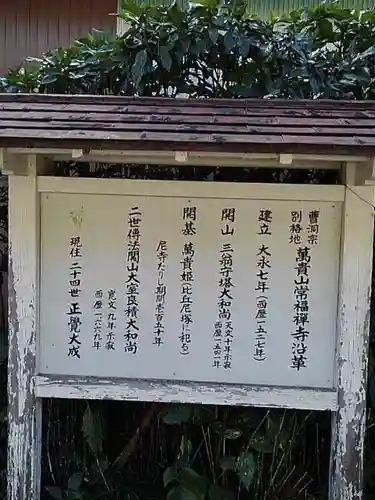 曹洞宗
別格地
萬貴山常福禅寺沿革
建立 大永七年(西歴一五二七年)
開山 三翁子塔大和尚 天文十年示寂
西歴一五四一年
開基 萬貴姫(比丘尼塚に祀ら)
尼寺たりし期間壱百五十年
二世傳法開山大室良積大和尚
寛文九年示寂
西歴一六六九年
現住 二十四世 正覺大成